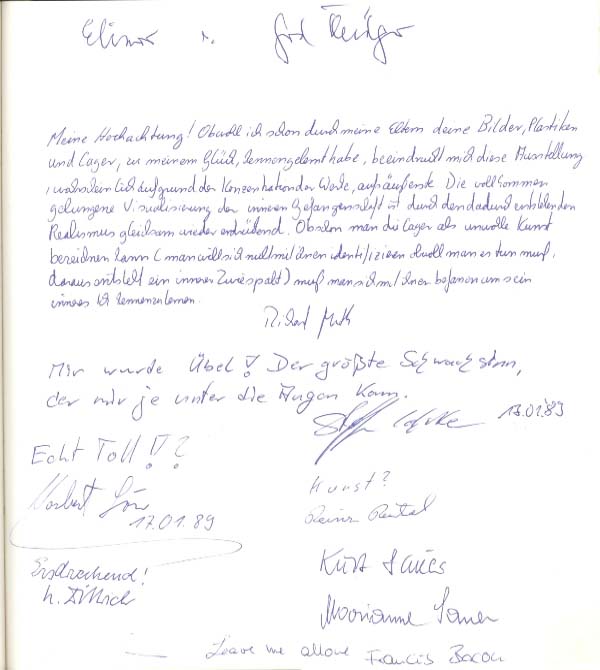 Elinor u. Gerd
Meine Hochachtung! Obwohl ich schon durch meine Eltern deine Bilder, Plastiken
und Cager, zu meinem Glück, kennengelernt habe, beeindruckt mich diese Ausstellung
, wahrscheinlich aufgrund der Konzentration der Werke, auf äußerste. Die vollkommen
gelungene Visualisierung der inneren Gefangenschaft ist durch den dadurch entstehenden
Realismus gleichsam wieder erdrückend. Obschon man die Cager als unvolle Kunst
bezeichnen kann (man will sich nicht mit ihnen identifizieren obwohl man es tun muß,
daraus entsteht ein innerer Zwiespalt) muß man sich mit ihnen befassen um sein
inneres Ich kennenzulernen.
Richard Muth
Mir wurde Übel! Der größte Schwachsinn,
der mir je unter die Augen kam.
17.01.89
Echt Toll!!?
Norbert
17.01.89
Kunst?
Erschreckend!
Kurt
Marianne
Leave me allone Francis Bacon